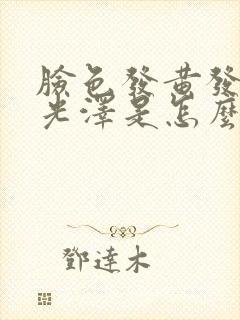 臉色發黃發
光澤是怎麼
鄧達木